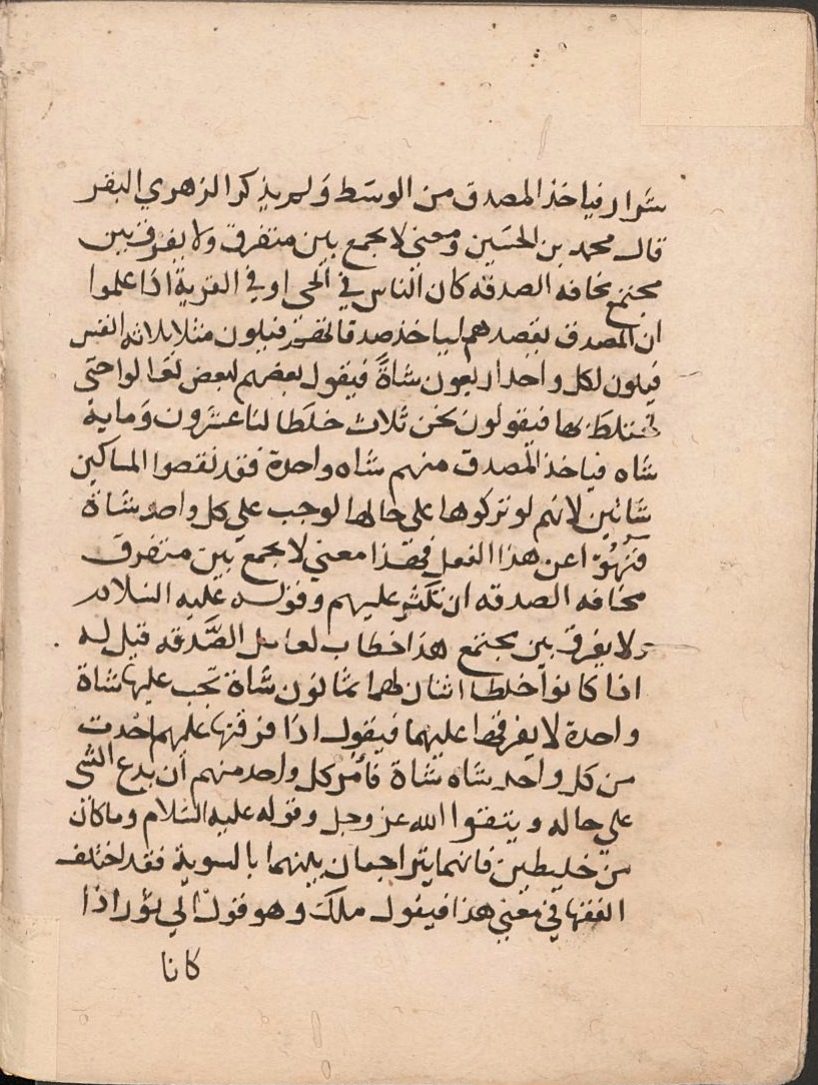 شرار فياخذ المصدق من الوسَط وَلم يذكر الزهري البقر
قال محمد بن الحسَين ومعني لا يجمع بين متفرق ولا يفرق بين
مجتمع مخافه الصدقه كان الناس في الحي او في القرية اذا علموا
ان المصدق يقصدهم لياخذ صدقاتهم فيكون مثلا ثلاثه انفس
فيكون لكل واحد اربعون شاةً فيقول بعضهم لبعض تعالوا حتي
نختلط بها فيقولون نحن ثلاث خلَطا لنا عشرون وَماية
شاه فياخذ المصدق منهم شاه واحدة فقد نقصوا المساكين
شاتين لانهم لو تركوها علي حالها لوجب علي كل واحد شاة
فنُهُوا عن هذا الفعل فهذا معني لا يجمع بين متفرق
مخافه الصدقه ان تكثر عليهم وقوله عليه السلام
ولا يفرق بين مجتمع هذا خطاب لعامل الصَّدقه قيل له
اذا كانوا خلطا اثنان لهما ثمانون شاة تجب عليها شاة
واحدة لا يفرقها عليهما فيقول اذا فرقتها عليهم اخدت
من كل واحد شاه شاة فأمر كل واحد منهم أن يدع الشي
علي حاله ويتقوا الله عز وجل وقوله عليه السلام وما كان
من خليطين فانهما يتراجعان بينهما بالسوية فقد اختلف
الفقها في معني هذا فيقول ملك وهو قول ابي ثور اذا
كانا